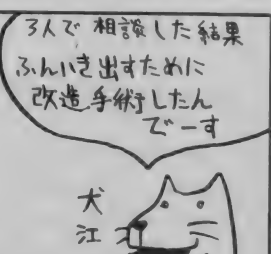 3人で相談した結果
ふんいき出すために
改造手術したん
でーす
犬
江